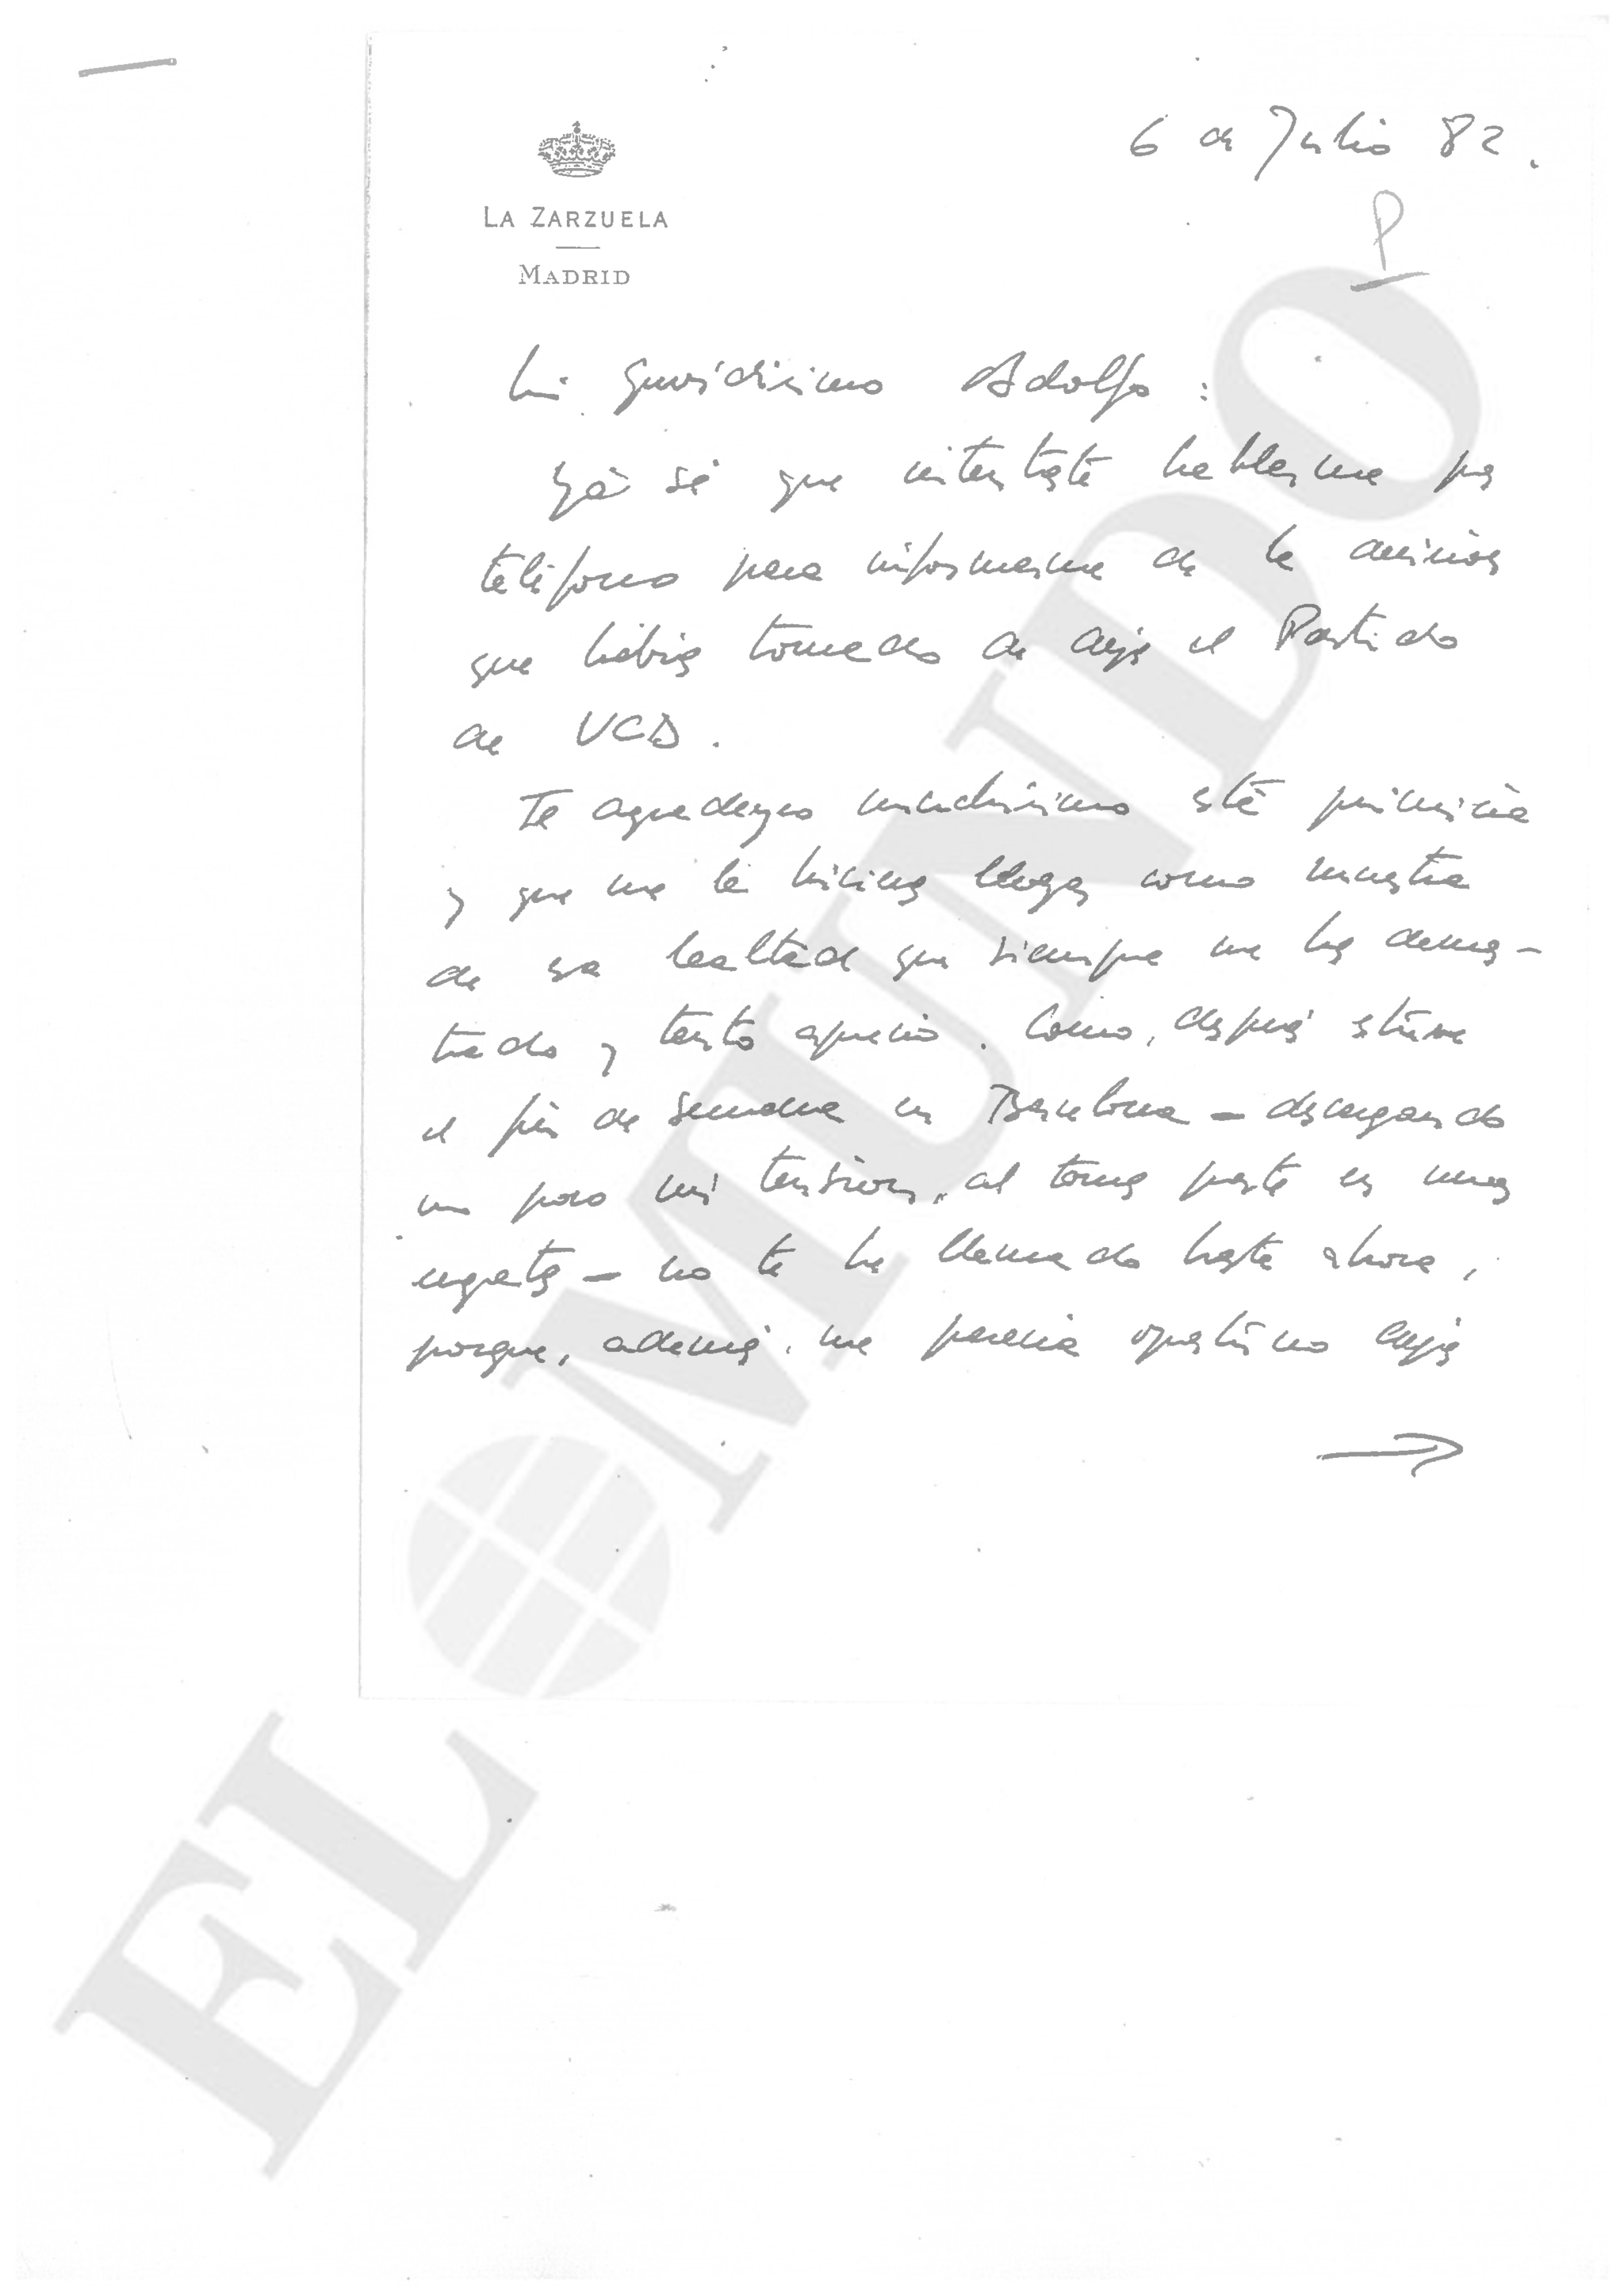 6 de Julio 82.
P
LA ZARZUELA
MADRID
Mi queridísimo Adolfo:
Yá sé que intentaste hablarme por
teléfono para informarme de la decisión
que habías tomado de dejar el Partido
de UCD.
Te agradezco muchísimo esta primicia
y que me la hicieras llegar como muestra
de esa lealtad que siempre me has demos-
trado y tanto aprecio. Como, después estuve
el fin de semana en Barcelona - descargando
un poco mi tensión, al tomar parte en unas
regatas - no te he llamado hasta ahora,
porque, además, me parecía oportuno dejar
→
EL MUNDO